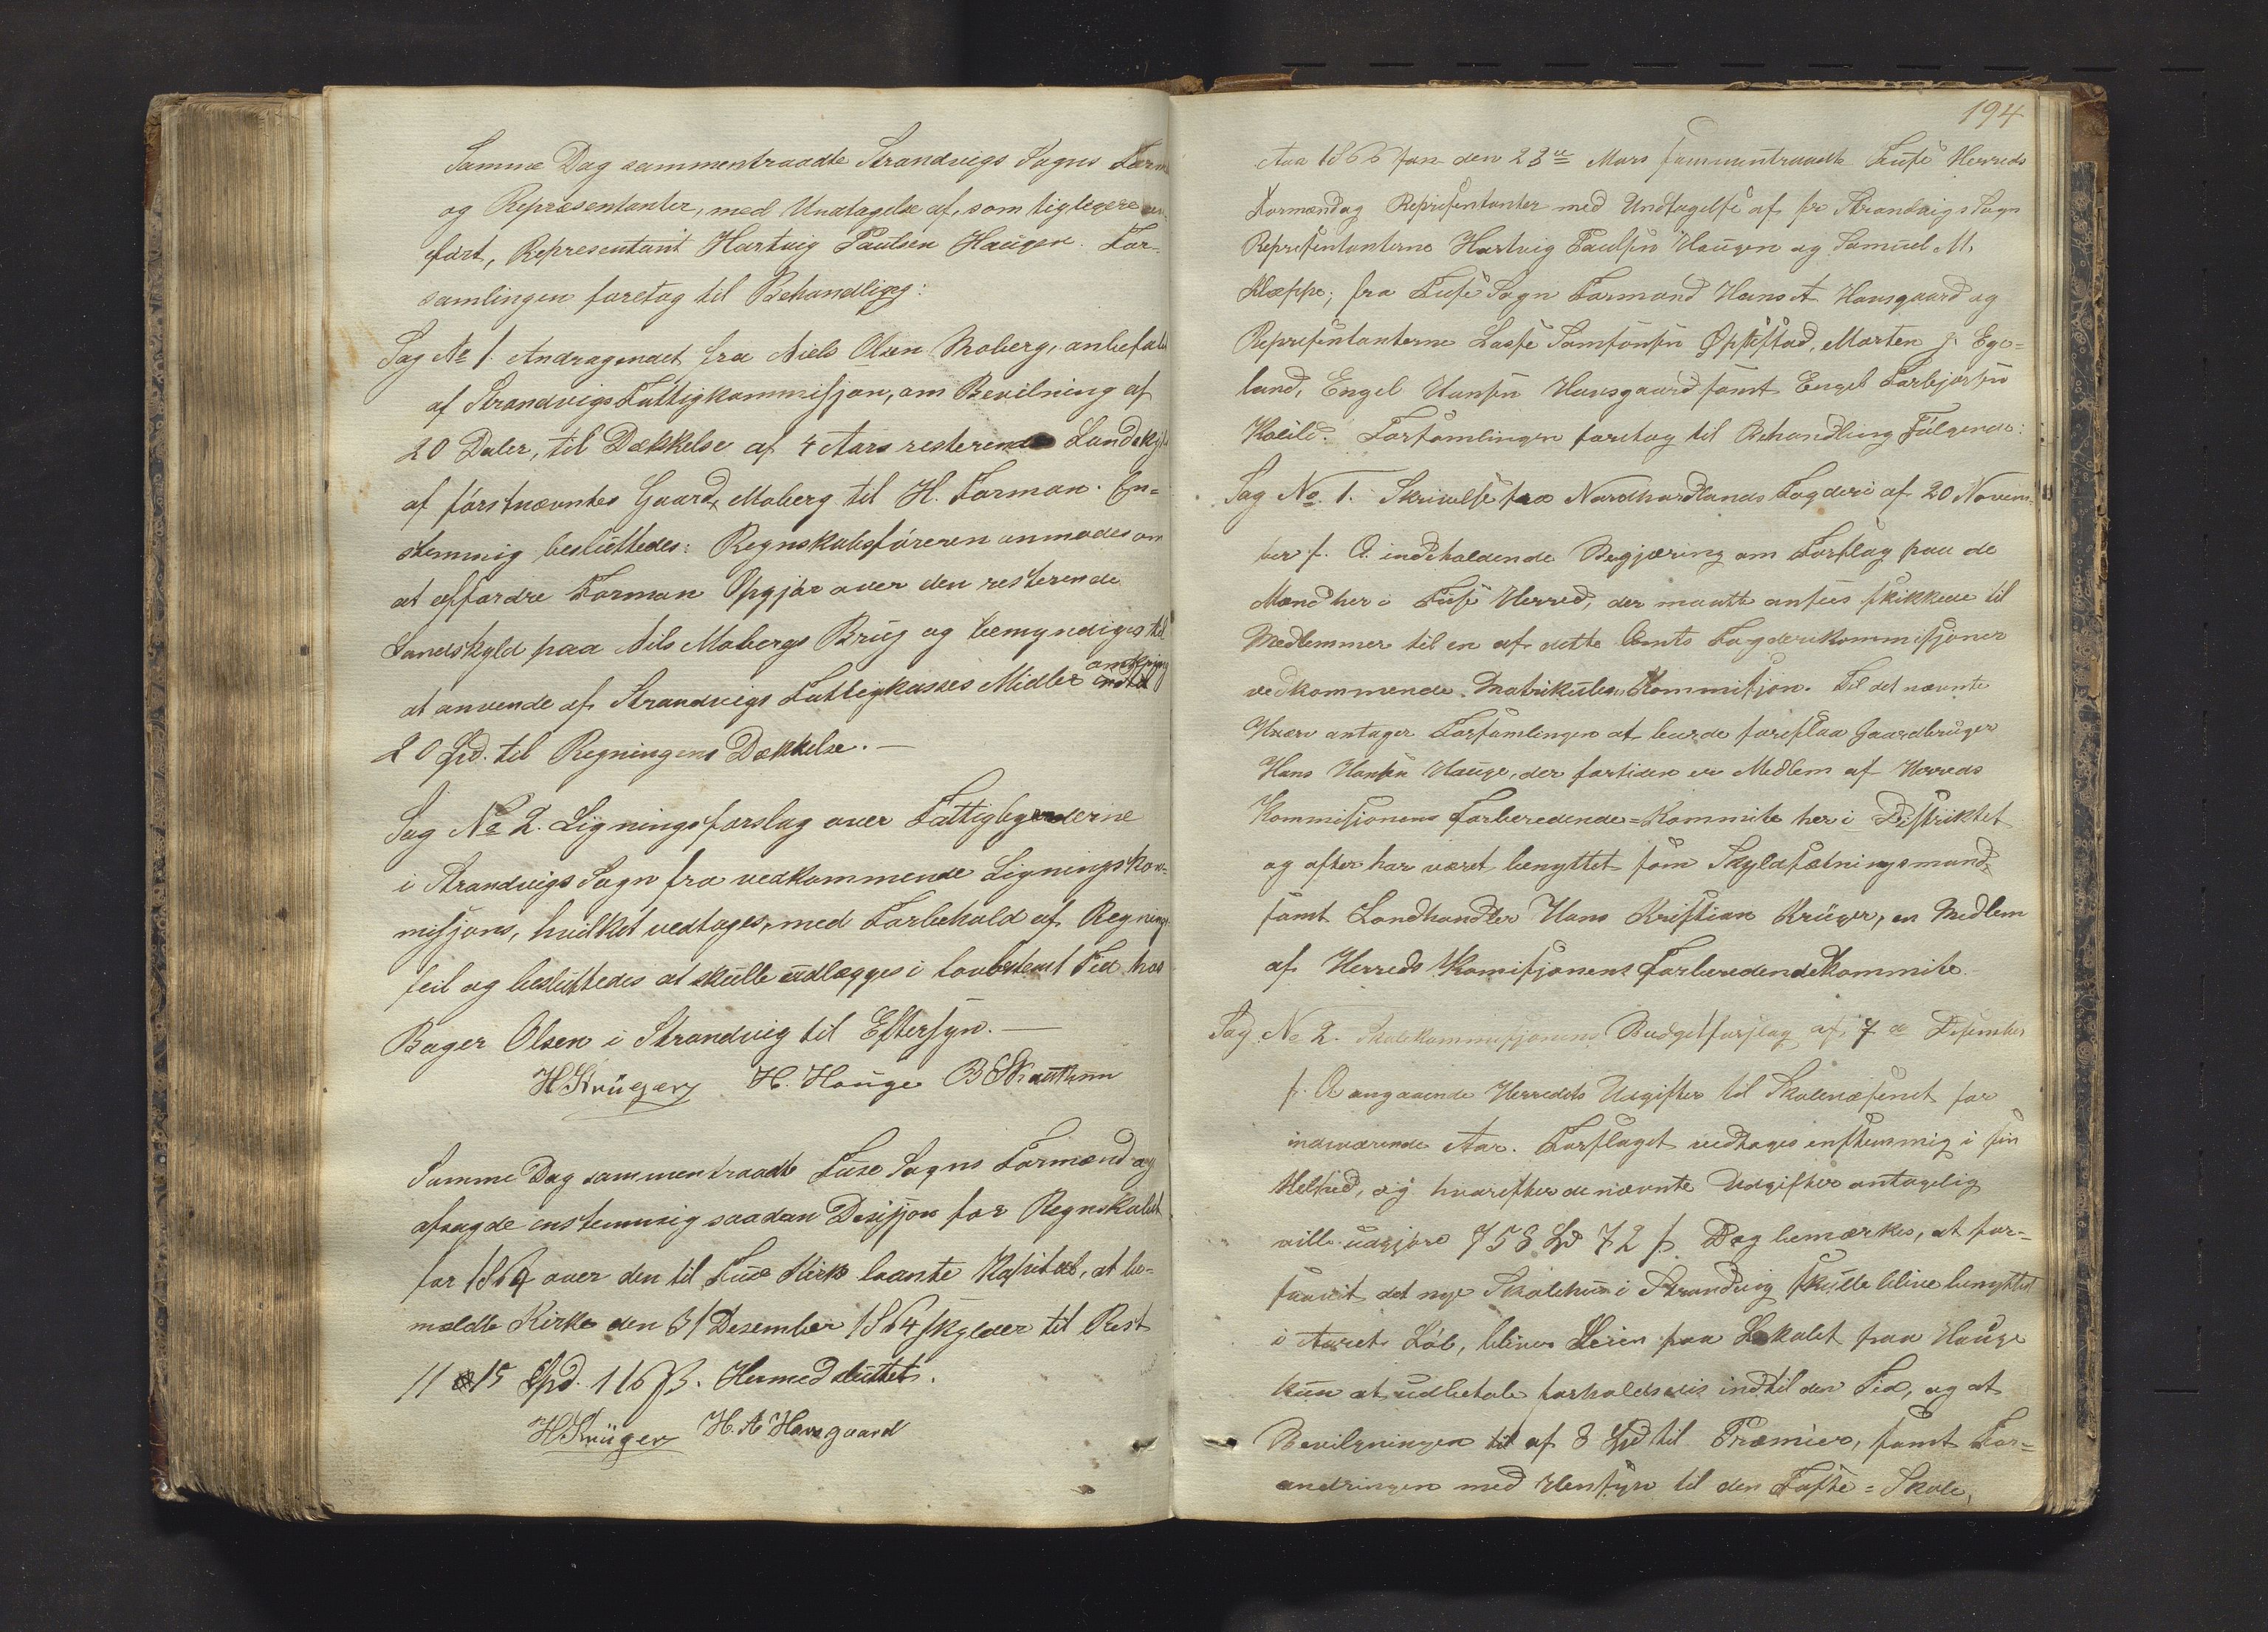 Samme Dag sammentraadte Strandvigs Sogns Form
og Repræsentanter, med Undtagelse af, som tigligere an-
ført, Representant Hartvig Paulsen Haugen. For-
samlingen foretog til Behandling:
Sag № 1. Andragendet fra Niels Olsen Moberg, anbefalet
af Strandvigs Fattigkommissjon, om Bevilning af
20 Daler, til Dækkelse af 4 Aars resterende Landskyld
af førstnævntes Gaard, Moberg til H. Forman. En-
stemmig besluttedes: Regnskabsføreren anmodes om
at affordre Forman Opgjør over den resterende
Landskyld paa Nils Mobergs Brug og bemyndiges til
at anvende af Strandvigs Fattigkasses Midler omkring
20 Spd. til Regningens Dækkelse. —
Sag № 2. Ligningsforslag over Fattiglegderne
i Strandvigs Sogn fra vedkommende Ligningskom-
misjons, hvilket vedtoges, med Forbehold af Regnings
feil og besluttedes at skulle udlægges i lovbestemt Tid hos
Bager Olsen i Strandvig til Eftersyn. —
H Krüger H. Hauge
Samme Dag sammentraadte Fuse Sogns Formænd og
afsagde enstemmig saadan Desisjon for Regnskabet
for 1864 over den til Fuse Kirke laante Kapital, at be-
meldte Kirke den 31 Desember 1864 skylder til Rest
11 15 Spd. 116 ß. Hermed sluttet.
H Krüger H. A Havsgaard
194
Aar 1866 den 23de Mars sammentraadte Fuse Herreds
Formænd og Repræsentanter med Undtagelse af fra Strandvigs Sogn
Repræsentanterne Hartvig Paulsen Haugen og Samuel M.
Kleppe; fra Fuse Sogn Formand Hans A Havsgaard og
Repræsentanterne Lasse Samsonsen Opsestad, Morten J. Ege-
land, Engel Hansen Havsgaard samt Engel Torbjørsen
Kolile. Forsamlingen foretog til Behandling Følgende:
Sag № 1. Skrivelse fra Nordhordlands Fogderi af 20 Novem-
ber f. A. indeholdende Begjæring om Forslag paa de
Mænd her i Fuse Herred, der maatte ansees skikkede til
Medlemmer til en af dette Amts Fogderikommissjoner
vedkommende Matrikuls Kommissjon. Til det nævnte
Hverv antager Forsamlingen at burde foreslaa Gaardbruger
Hans Hansen Hauge, der fortiden er Medlem af Herreds
Kommisionens Forberedende=Kommite her i Distriktet
og ofter har været benyttet som Skyldsætningsmand,
samt Landhandler Hans Kristian Krüger, en Medlem
af Herreds Komisjonens Forberedende Kommite.
Sag № 2. Skolekommissjonens Budgetforslag af 7de Desember
f. A angaaende Herredets Udgifter til Skolevæsenet for
indeværende Aar. Forslaget vedtoges enstemmig i sin
Helhed, og hvorefter de nævnte Udgifter antagelig
ville udgjøre 758 Spd 72 ß. Dog bemærkes, at for-
saavit det nye Skolehus i Strandvig skulde blive benyttet
i Aarets Løb, bliver Leien paa Lokalet paa Hauge
kun at udbetale forholdsvis indtil den Tid, og at
Bevilgningen til af 8 Spd til Præmier, samt For-
andringen med Hensyn til den Faste=Skole,